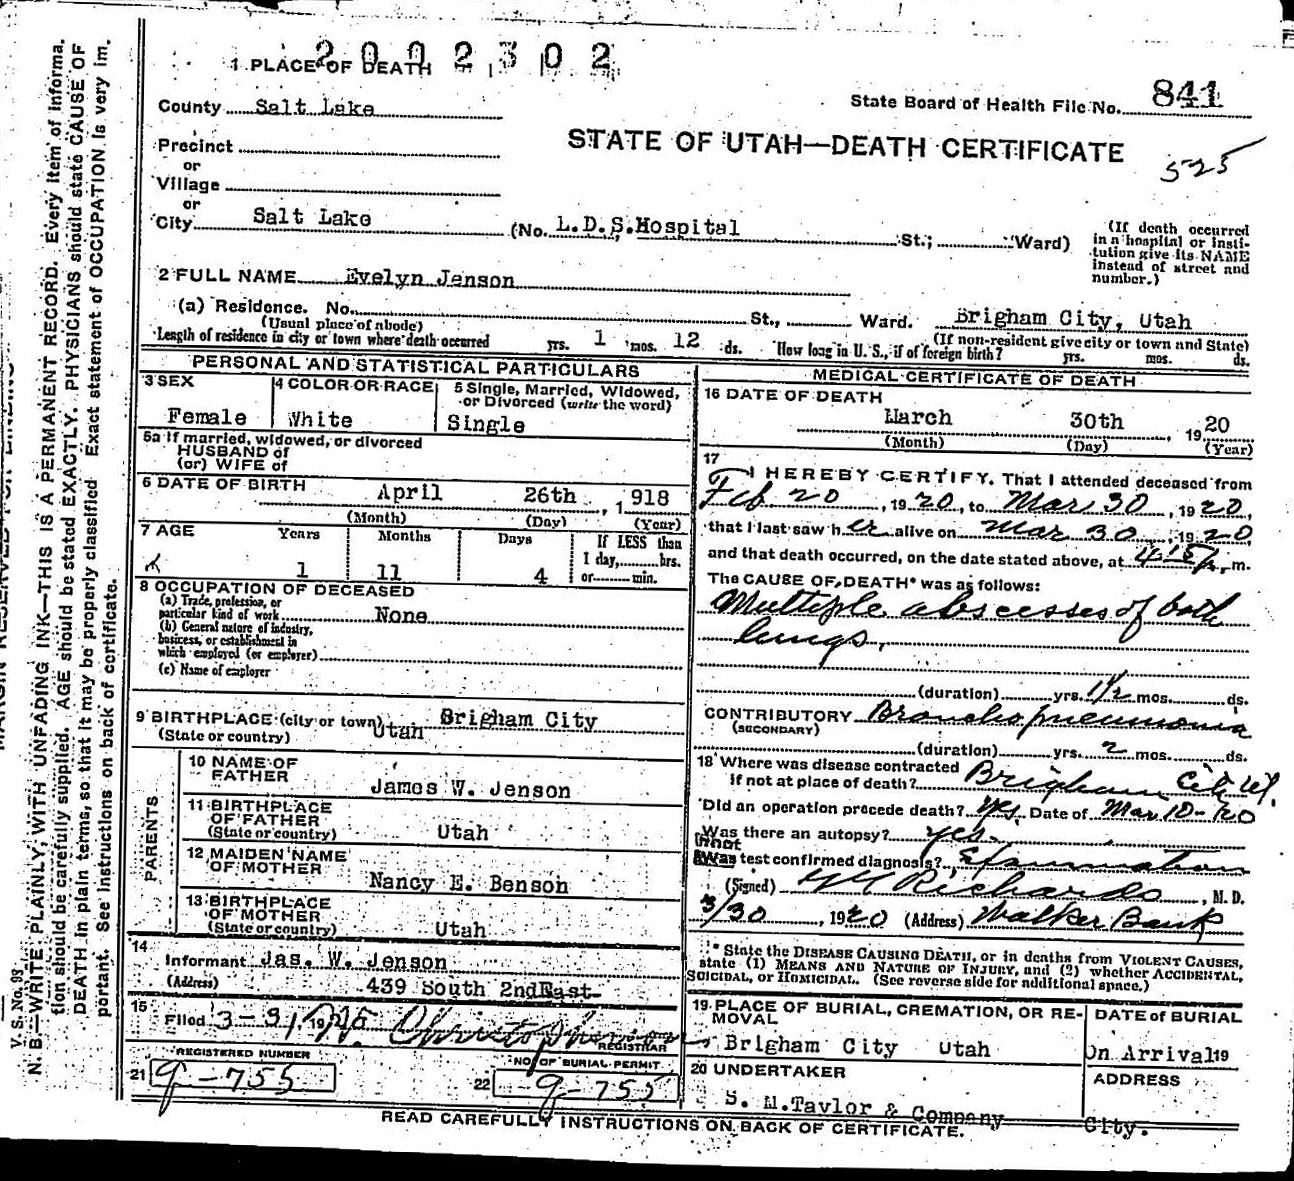 2002302
1 PLACE OF DEATH
County Salt Lake
State Board of Health File No. 841
STATE OF UTAH—DEATH CERTIFICATE
525
Precinct
or
Village
or
City Salt Lake (No. L.D.S. Hospital St.; Ward)
(If death occurred in a hospital or insti-
tution give its NAME
instead of street and
number.)
2 FULL NAME Evelyn Jenson
(a) Residence. No. St., Ward. Brigham City, Utah
(Usual place of abode) (If non-resident give city or town and State)
Length of residence in city or town where death occurred yrs. 1 mos. 12 ds. How long in U. S., if of foreign birth? yrs. mos. ds.
PERSONAL AND STATISTICAL PARTICULARS
3 SEX Female
4 COLOR OR RACE White
5 Single, Married, Widowed,
or Divorced (write the word)
Single
5a If married, widowed, or divorced
HUSBAND of
(or) WIFE of
6 DATE OF BIRTH April 26th, 1918
(Month) (Day) (Year)
7 AGE Years Months Days If LESS than
1 11 4 1 day,......hrs.
or......min.
8 OCCUPATION OF DECEASED
(a) Trade, profession, or
particular kind of work None
(b) General nature of industry,
business, or establishment in
which employed (or employer)
(c) Name of employer
9 BIRTHPLACE (city or town) Brigham City
(State or country) Utah
PARENTS
10 NAME OF
FATHER James W. Jenson
11 BIRTHPLACE
OF FATHER
(State or country) Utah
12 MAIDEN NAME
OF MOTHER Nancy E. Benson
13 BIRTHPLACE
OF MOTHER
(State or country) Utah
14
Informant Jas. W. Jenson
(Address) 439 South 2nd East
15
Filed 3-31, 19
REGISTRAR
REGISTERED NUMBER
21 9-755
NO. OF BURIAL PERMIT
22 9-755
MEDICAL CERTIFICATE OF DEATH
16 DATE OF DEATH
March 30th, 1920
(Month) (Day) (Year)
17
I HEREBY CERTIFY, That I attended deceased from
Feb 20, 1920, to Mar 30, 1920,
that I last saw her alive on Mar 30, 1920,
and that death occurred, on the date stated above, at 4:15 p. m.
The CAUSE OF DEATH* was as follows:
Multiple abscesses of both
lungs.
(duration) yrs. 1 1/2 mos. ds.
CONTRIBUTORY Bronchopneumonia
(SECONDARY)
(duration) yrs. 2 mos. ds.
18 Where was disease contracted
if not at place of death? Brigham City Ut.
Did an operation precede death? Yes. Date of Mar 10-20
Was there an autopsy? yes.
What test confirmed diagnosis? Examination
(Signed) Richards, M. D.
3/30, 1920 (Address) Walker Bank
* State the DISEASE CAUSING DEATH, or in deaths from VIOLENT CAUSES,
state (1) MEANS AND NATURE OF INJURY, and (2) whether ACCIDENTAL,
SUICIDAL, or HOMICIDAL. (See reverse side for additional space.)
19 PLACE OF BURIAL, CREMATION, OR RE-
MOVAL
Brigham City Utah
DATE of BURIAL
On Arrival 19
20 UNDERTAKER
S. M. Taylor & Company
ADDRESS
City.
READ CAREFULLY INSTRUCTIONS ON BACK OF CERTIFICATE.
V. S. No. 98
N. B.—WRITE PLAINLY, WITH UNFADING INK—THIS IS A PERMANENT RECORD. Every item of informa-
tion should be carefully supplied. AGE should be stated EXACTLY. PHYSICIANS should state CAUSE OF
DEATH in plain terms, so that it may be properly classified. Exact statement of OCCUPATION is very im-
portant. See instructions on back of certificate.